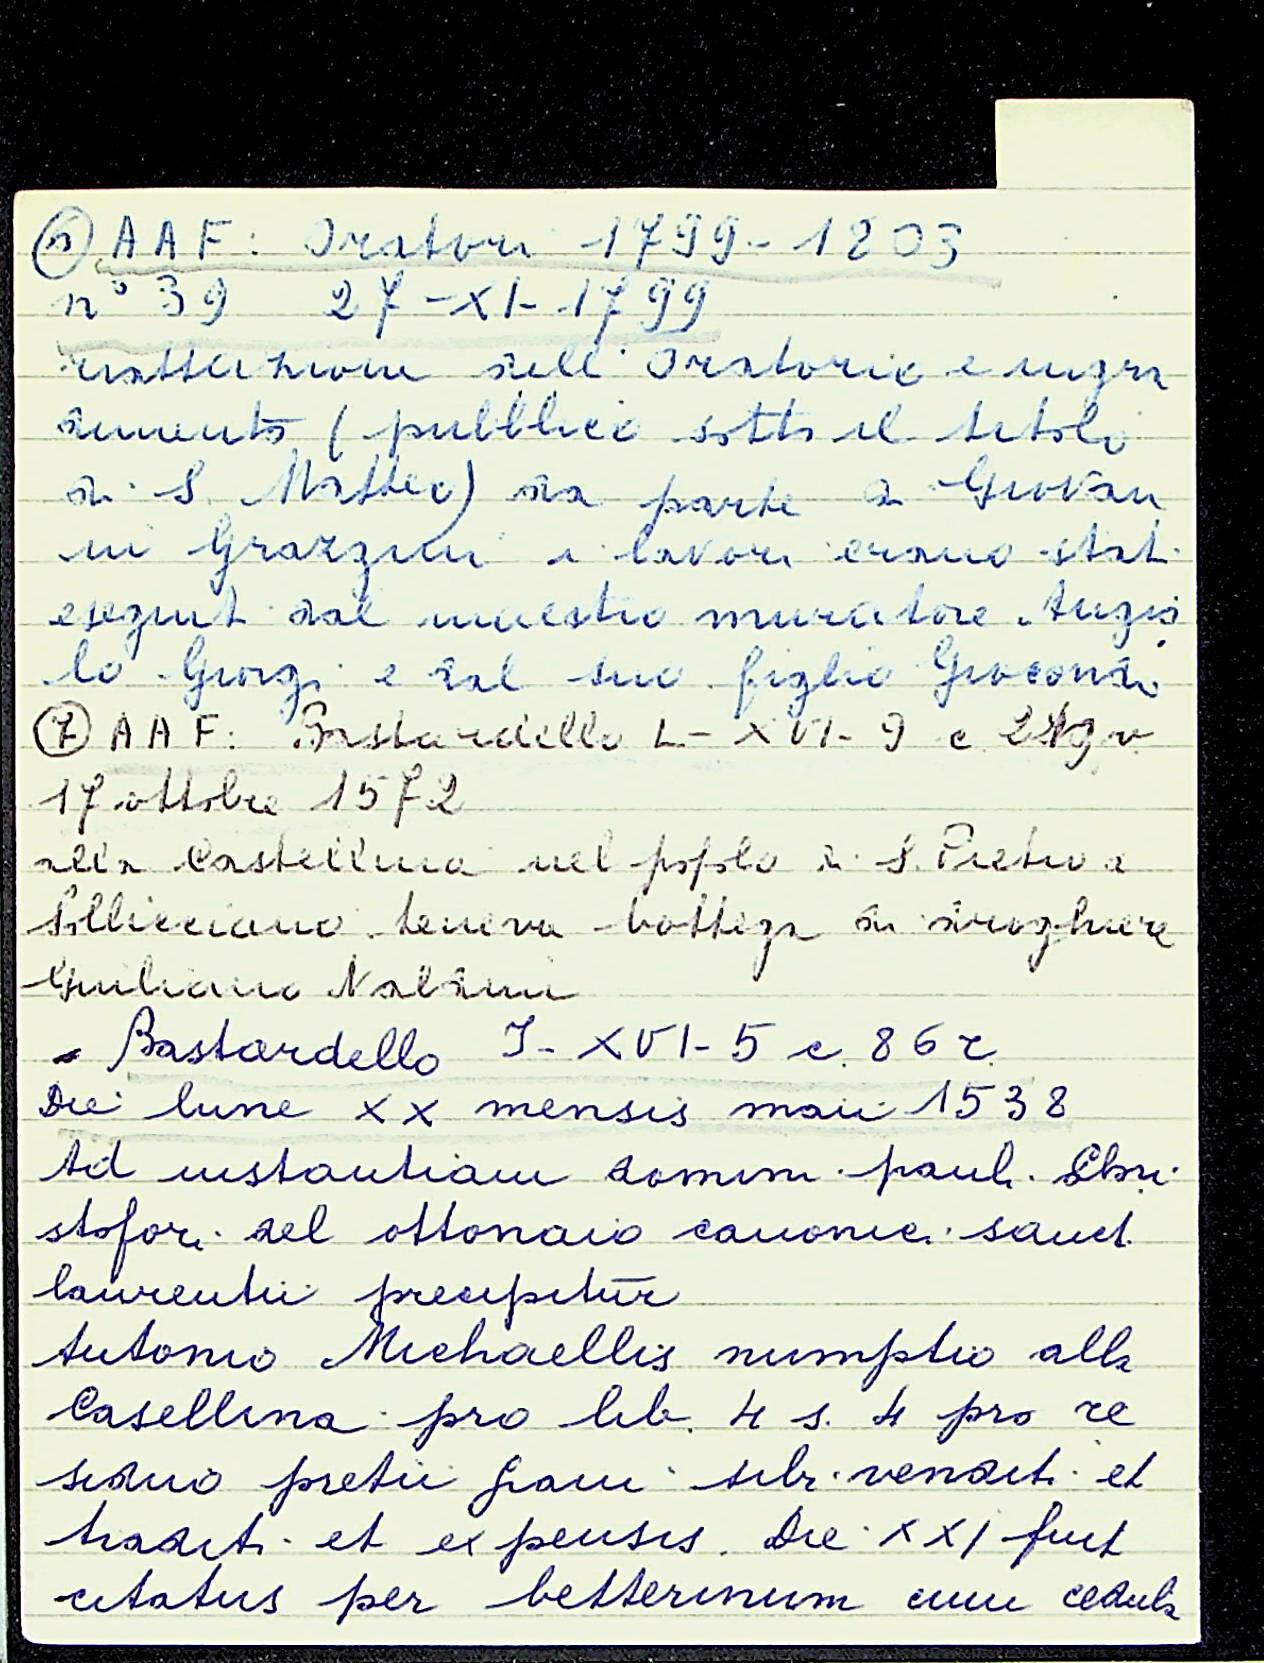 ⑥ AAF: Oratori 1799-1803
n° 39 27-XI-1799
riattazione dell'Oratorio e ingran
dimento (pubblico sotto il titolo
di S. Matteo) da parte di Giovan
ni Grazzini i lavori erano stati
eseguiti dal maestro muratore Angio
lo Giorgi e dal suo figlio Giocondo
⑦ AAF: Bastardello L-XVI-9 c v
17 ottobre 1572
alla Castellina nel popolo di S. Pietro a
Sollicciano teneva bottega di droghiere
Giuliano Naldini
- Bastardello I-XVI-5 c. 86 r
Die lune XX mensis maii 1538
Ad instantiam domini pauli Chri
stofori del ottonaio canonici sancti
laurentii precipitur
Antonio Michaellis numptio alla
Casellina pro lib. 4 s. 4 pro re
siduo pretii grani sibi venditi et
traditi et expensis. Die XXI fuit
citatus per betterinum cum cedula